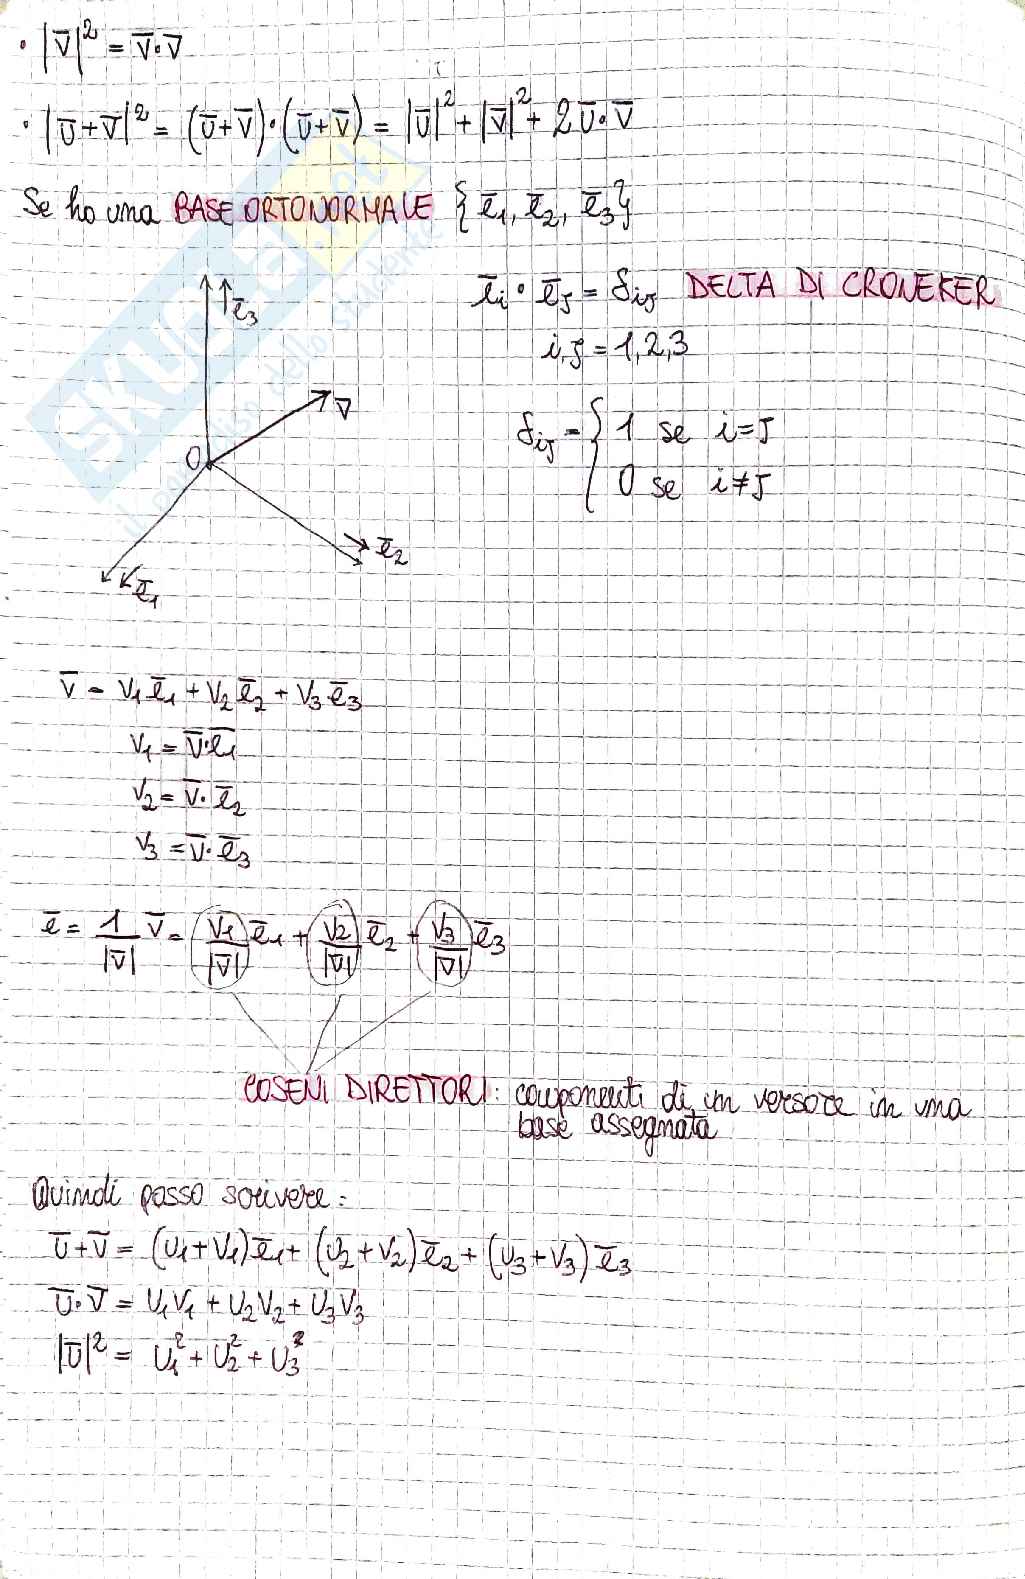 • |v̅|² = v̅·v̅
• |u̅+v̅|² = (u̅+v̅)·(u̅+v̅) = |u̅|² + |v̅|² + 2u̅·v̅
Se ho una BASE ORTONORMALE {e̅₁, e̅₂, e̅₃}
e̅₃
e̅i · e̅j = δij DELTA DI CRONEKER
i,j = 1,2,3
v̅
δij = { 1 se i=j
0 se i≠j
O
e̅₂
e̅₁
v̅ = v₁e̅₁ + v₂e̅₂ + v₃e̅₃
v₁ = v̅·e̅₁
v₂ = v̅·e̅₂
v₃ = v̅·e̅₃
e̅ = 1/|v̅| v̅ = v₁/|v̅| e̅₁ + v₂/|v̅| e̅₂ + v₃/|v̅| e̅₃
COSENI DIRETTORI: componenti di un versore in una
base assegnata
Quindi posso scrivere:
u̅+v̅ = (u₁+v₁)e̅₁ + (u₂+v₂)e̅₂ + (u₃+v₃)e̅₃
u̅·v̅ = u₁v₁ + u₂v₂ + u₃v₃
|u̅|² = u₁² + u₂² + u₃²
SKUOLA.net
il paradiso dello studente